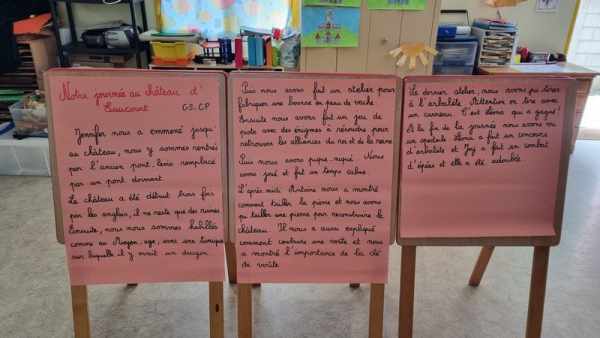 Notre journée au château d'
Eaucourt GS. CP
Jennifer nous a emmené jusqu'
au château, nous y sommes rentrés
par l'ancien pont. levis remplacé
par un pont dormant.
Le château a été détruit trois fois
par les anglais, il ne reste que des ruines
Ensuite, nous nous sommes habillés
comme au Moyen. age, avec une tunique
sur laquelle il y avait un dragon.
Puis nous avons fait un atelier pour
fabriquer une bourse en peau de vache.
Ensuite nous avons fait un jeu de
piste avec des énigmes à résoudre pour
retrouver les alliances du roi et de la reine
Puis nous avons pique. niqué. Nous
avons joué et fait un temps calme.
L'après. midi Antoine nous a montré
comment tailler la pierre et nous avons
pu tailler une pierre pour reconstruire le
château. Il nous a aussi expliqué
comment construire une voûte et nous
a montré l'importance de la clé
de voûte.
Le dernier atelier, nous avons pu tirer
à l'arbalète. Attention on tire avec
un carreau. C'est Elena qui a gagné!
A la fin de la journée nous avons vu
un spectacle Elena a fait un concours
d'arbalète et Joy a fait un combat
d'épées et elle a été adoubée.